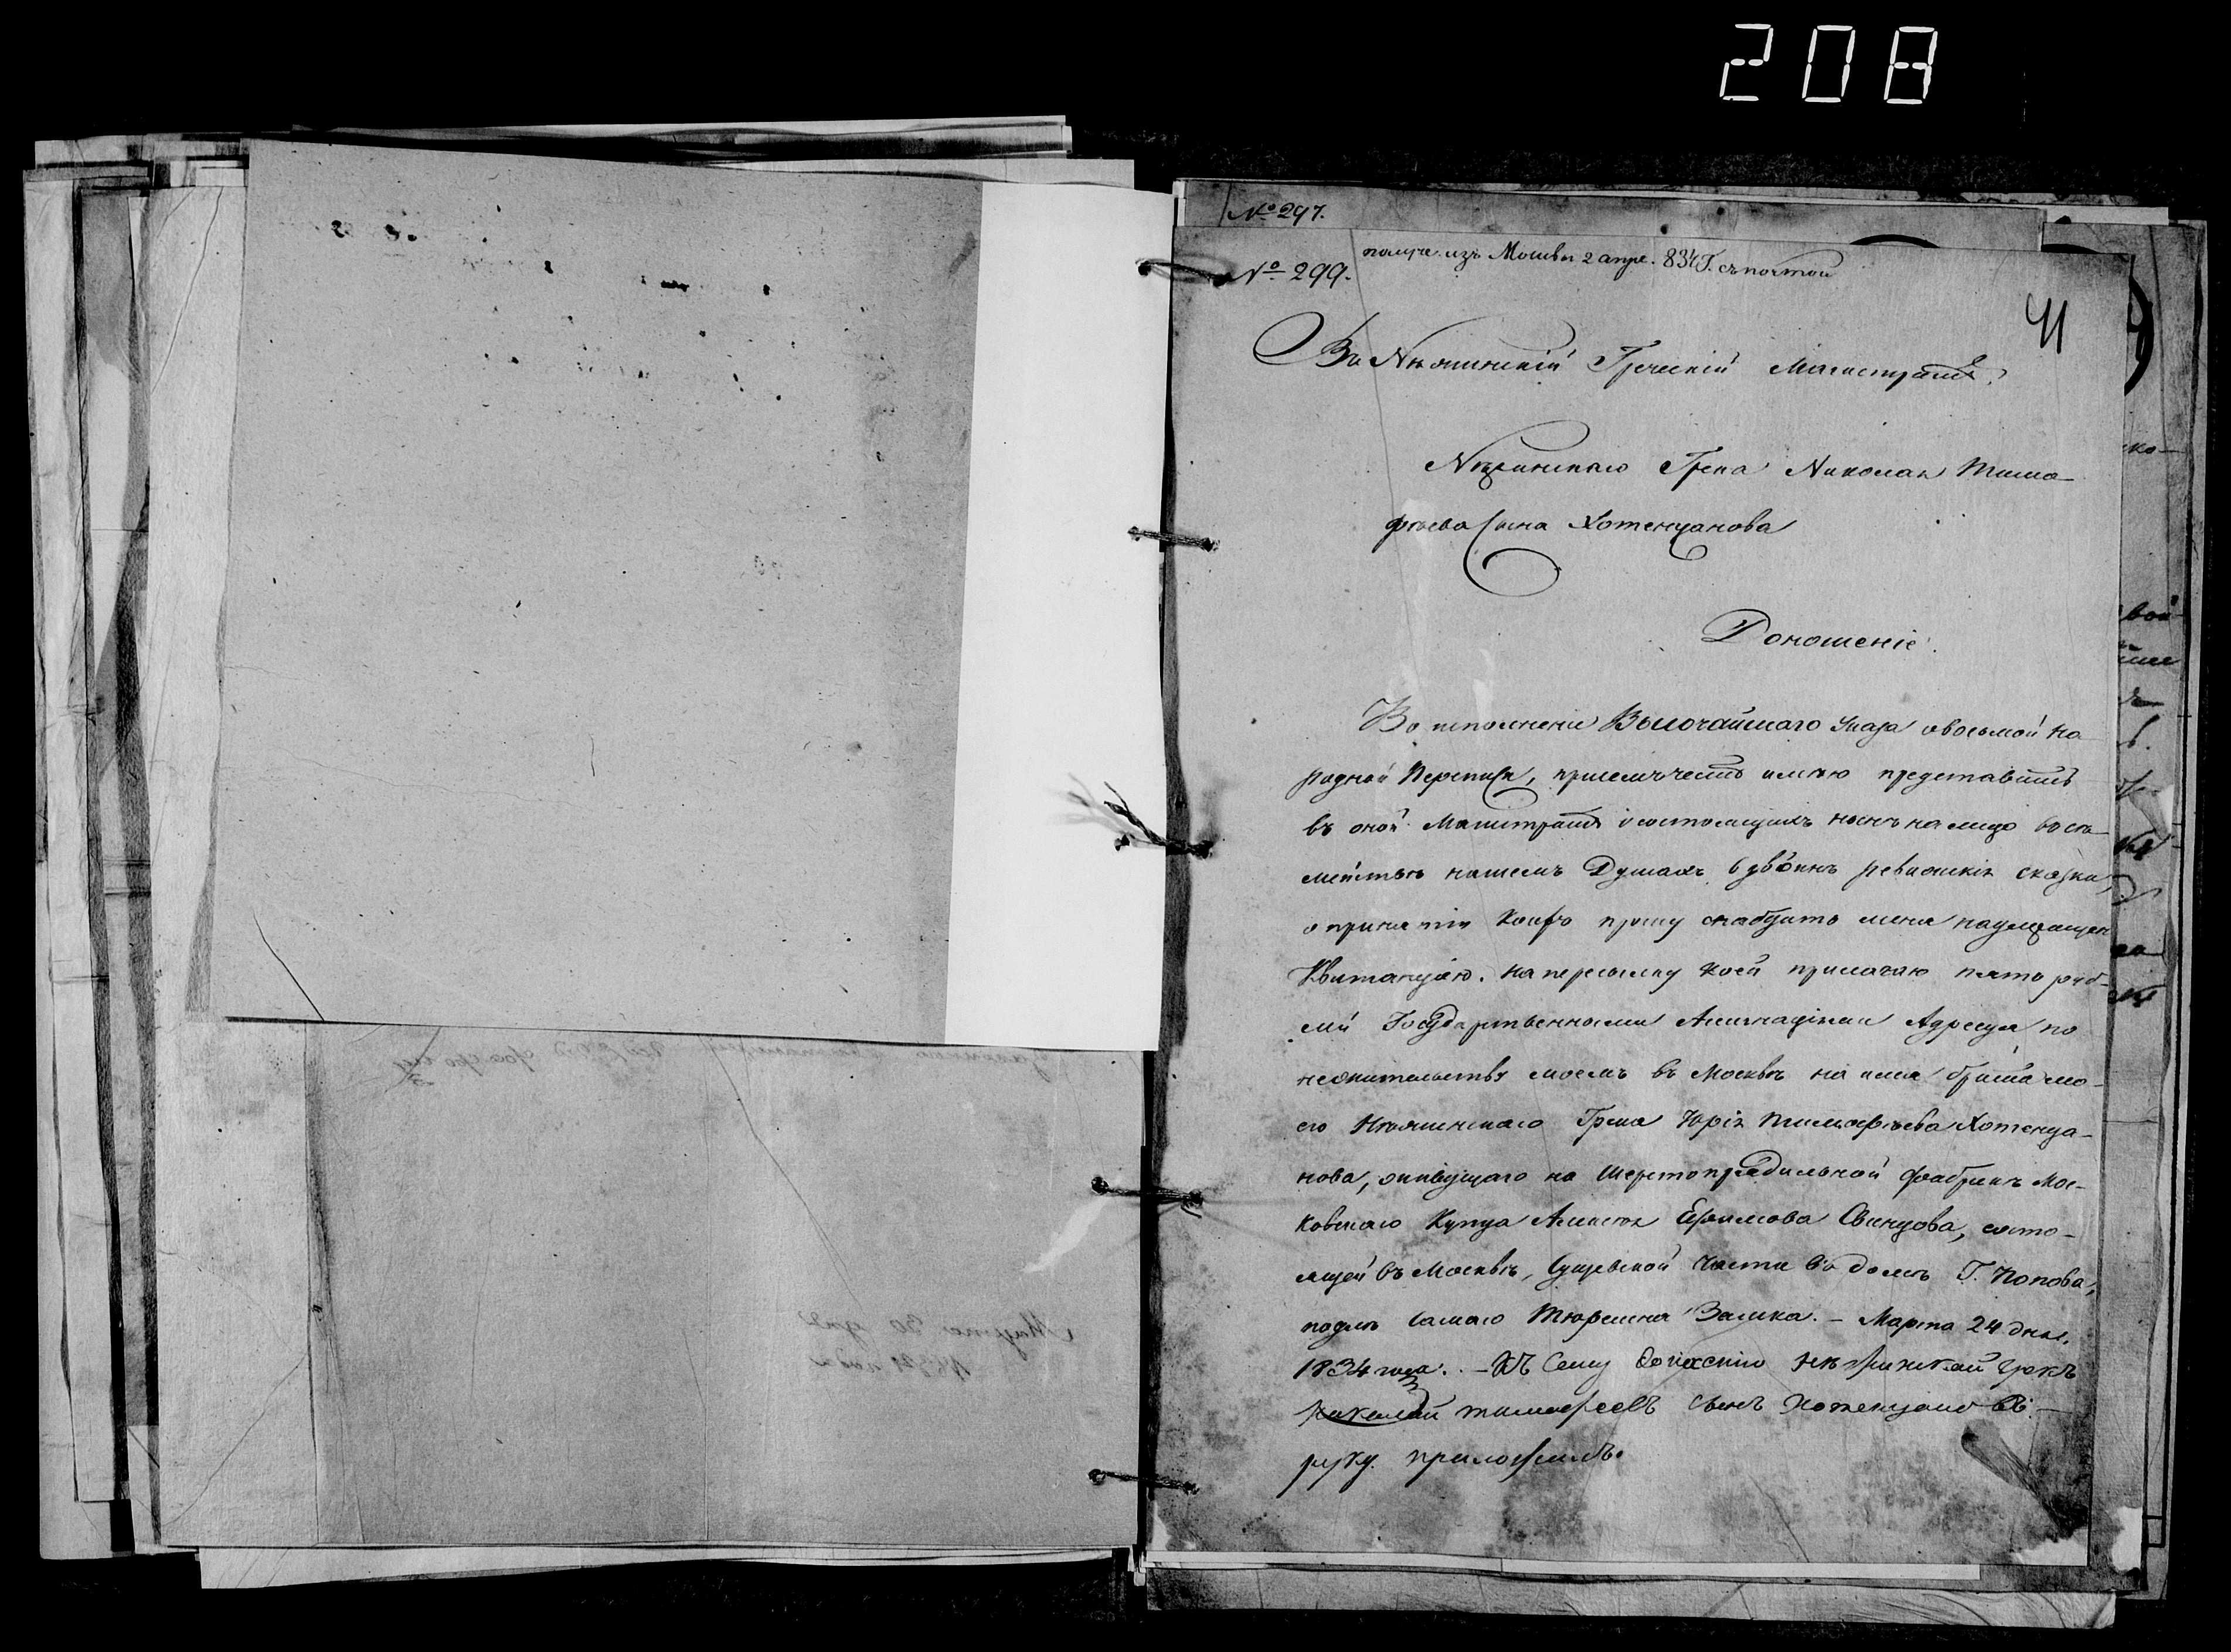 208
№ 297.
№ 299.
получе. изъ Москвы 2 апре. 834 Г. съ почтой
41
Въ Нѣжинскій Греческій Магистратъ,
Нѣжинскаго Грека Николая Тимо-
фѣева Сына Хотенцанова
Доношеніе.
Во исполненіе Высочайшаго Указа о восьмой на
родной Переписи, при семъ честь имѣю представить
въ оной Магистратъ о состоящихъ нынѣ на лицо во се-
мействѣ нашемъ Душахъ вдвойнѣ ревизскія сказки,
о принятіи коихъ прошу снабдить меня надлежащею
Квитанціею. на пересылку коей прилагаю пять руб-
лей Государственными Ассигнаціями Адресуя по
нежительству моемъ въ Москвѣ на имя брата мо-
его Нѣжинскаго Грека Юрія Тимофѣева Хотенца-
нова, живущаго на Шерстопрядильной фабрикѣ Мос-
ковскаго Купца Алексѣя Ефимова Свинцова, состо-
ящей въ Москвѣ, Сущевской Части въ домѣ Г. Попова,
подлѣ самаго Тюремна Замка. – Марта 24 дня,
1834 года. – Къ Сему доношенію нѣжинскай грекъ
николай тимофеевъ сынъ Хотенцановъ
руку приложилъ.
Марта 30 дня
1834 года